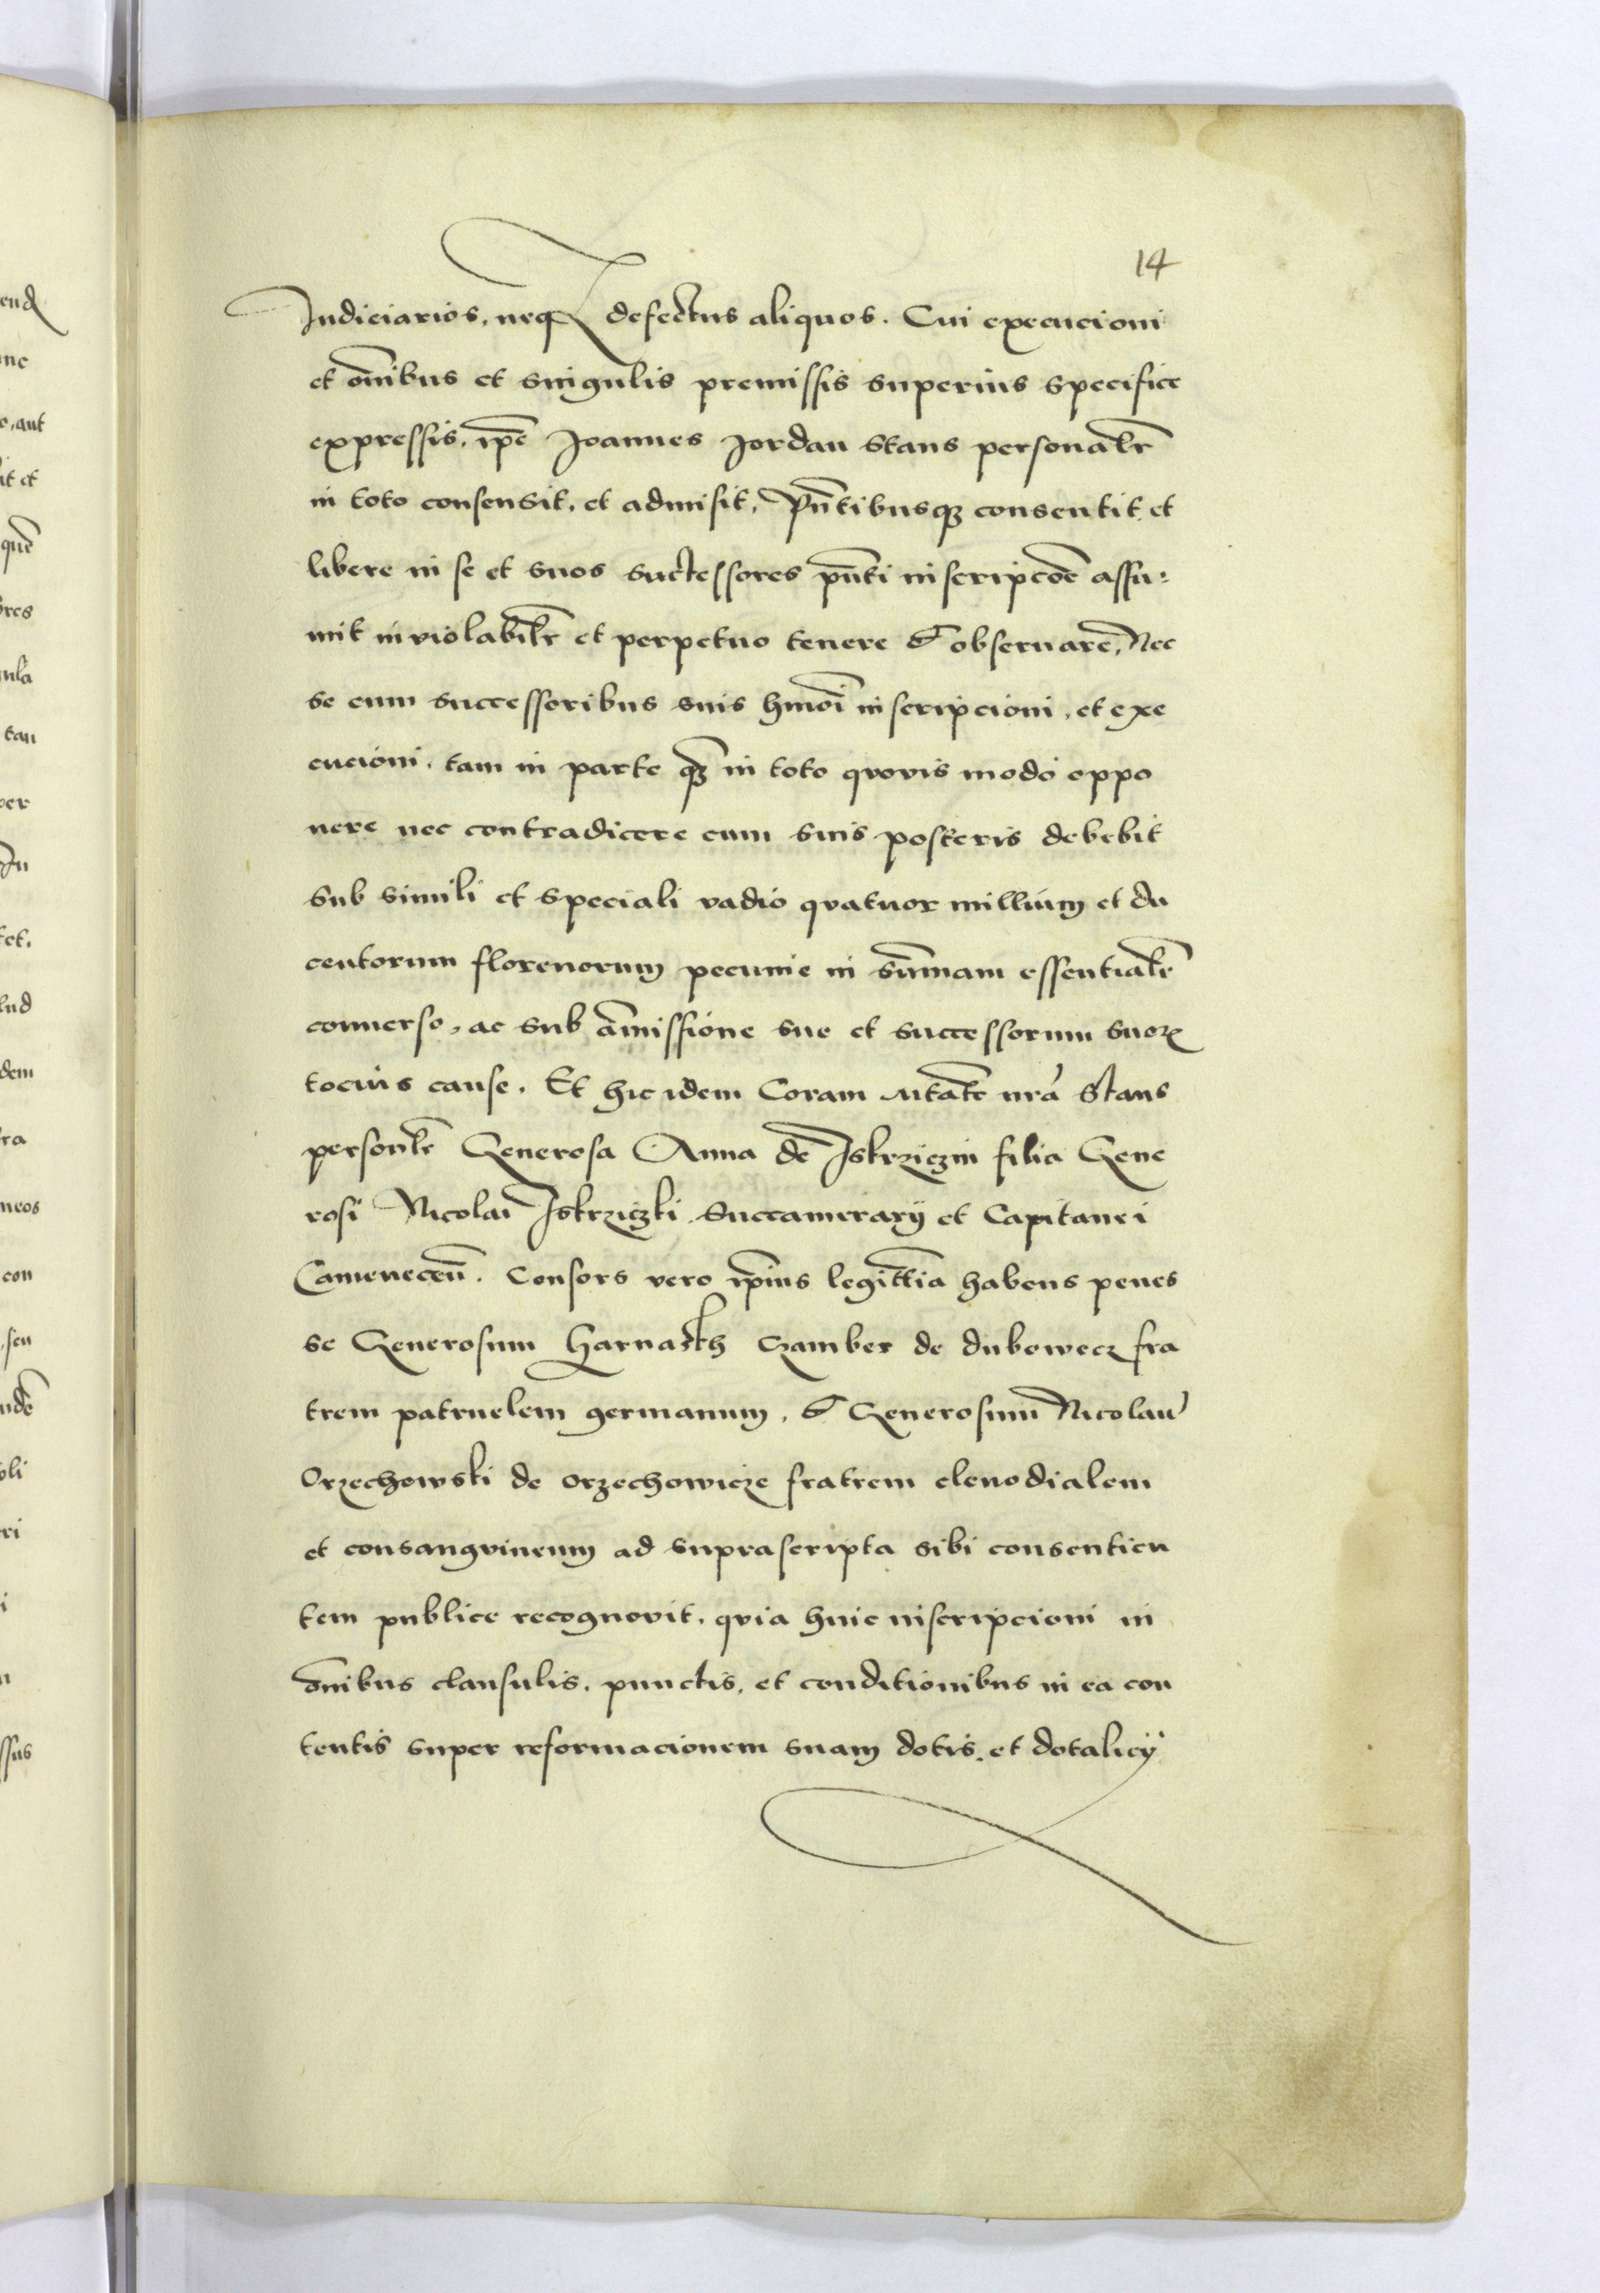 14
Judiciarios, neqꝫ defectus aliquos. Cui execucioni
et om̅ibus et singulis premissis superius specifice
expressis, ip̅e Joannes Jordan stans personalr̅
in toto consensit, et admisit, Pn̅tibusqꝫ consentit et
libere in se et suos successores pn̅ti inscripcoe̅ assu-
mit inviolabilr̅ et perpetuo tenere & observare, Nec
se cum successoribus suis hmo̅i inscripcioni, et exe
cucioni, tam in parte qꝫ̅ in toto quovis modo oppo
nere nec contradicere cum suis posteris debebit
sub simili et speciali vadio quatuor millium et du
centorum florenorum pecunie in sum̅am essentialr̅
converso, ac sub am̅issione sue et successorum suoꝝ
tocius cause. Et hic idem Coram nr̅a stans
personlr̅ Generosa Anna de Iskrziczin filia Gene
rosi Nicolai Iskrziczki Succamerarij et Capitanei
Camenecen̅. Consors vero ip̅ius legittim̅a habens penes
se Generosum Harnasth Czamber de dubowecz fra
trem patruelem germanum, & Generosum Nicolau̅
Orzechowski de orzechowicze fratrem clenodialem
et consanguineum ad suprascripta sibi consentien
tem publice recognovit, quia huic inscripcioni in
om̅ibus clausulis, punctis, et conditionibus in ea con
tentis super reformacionem suam dotis, et dotalicij